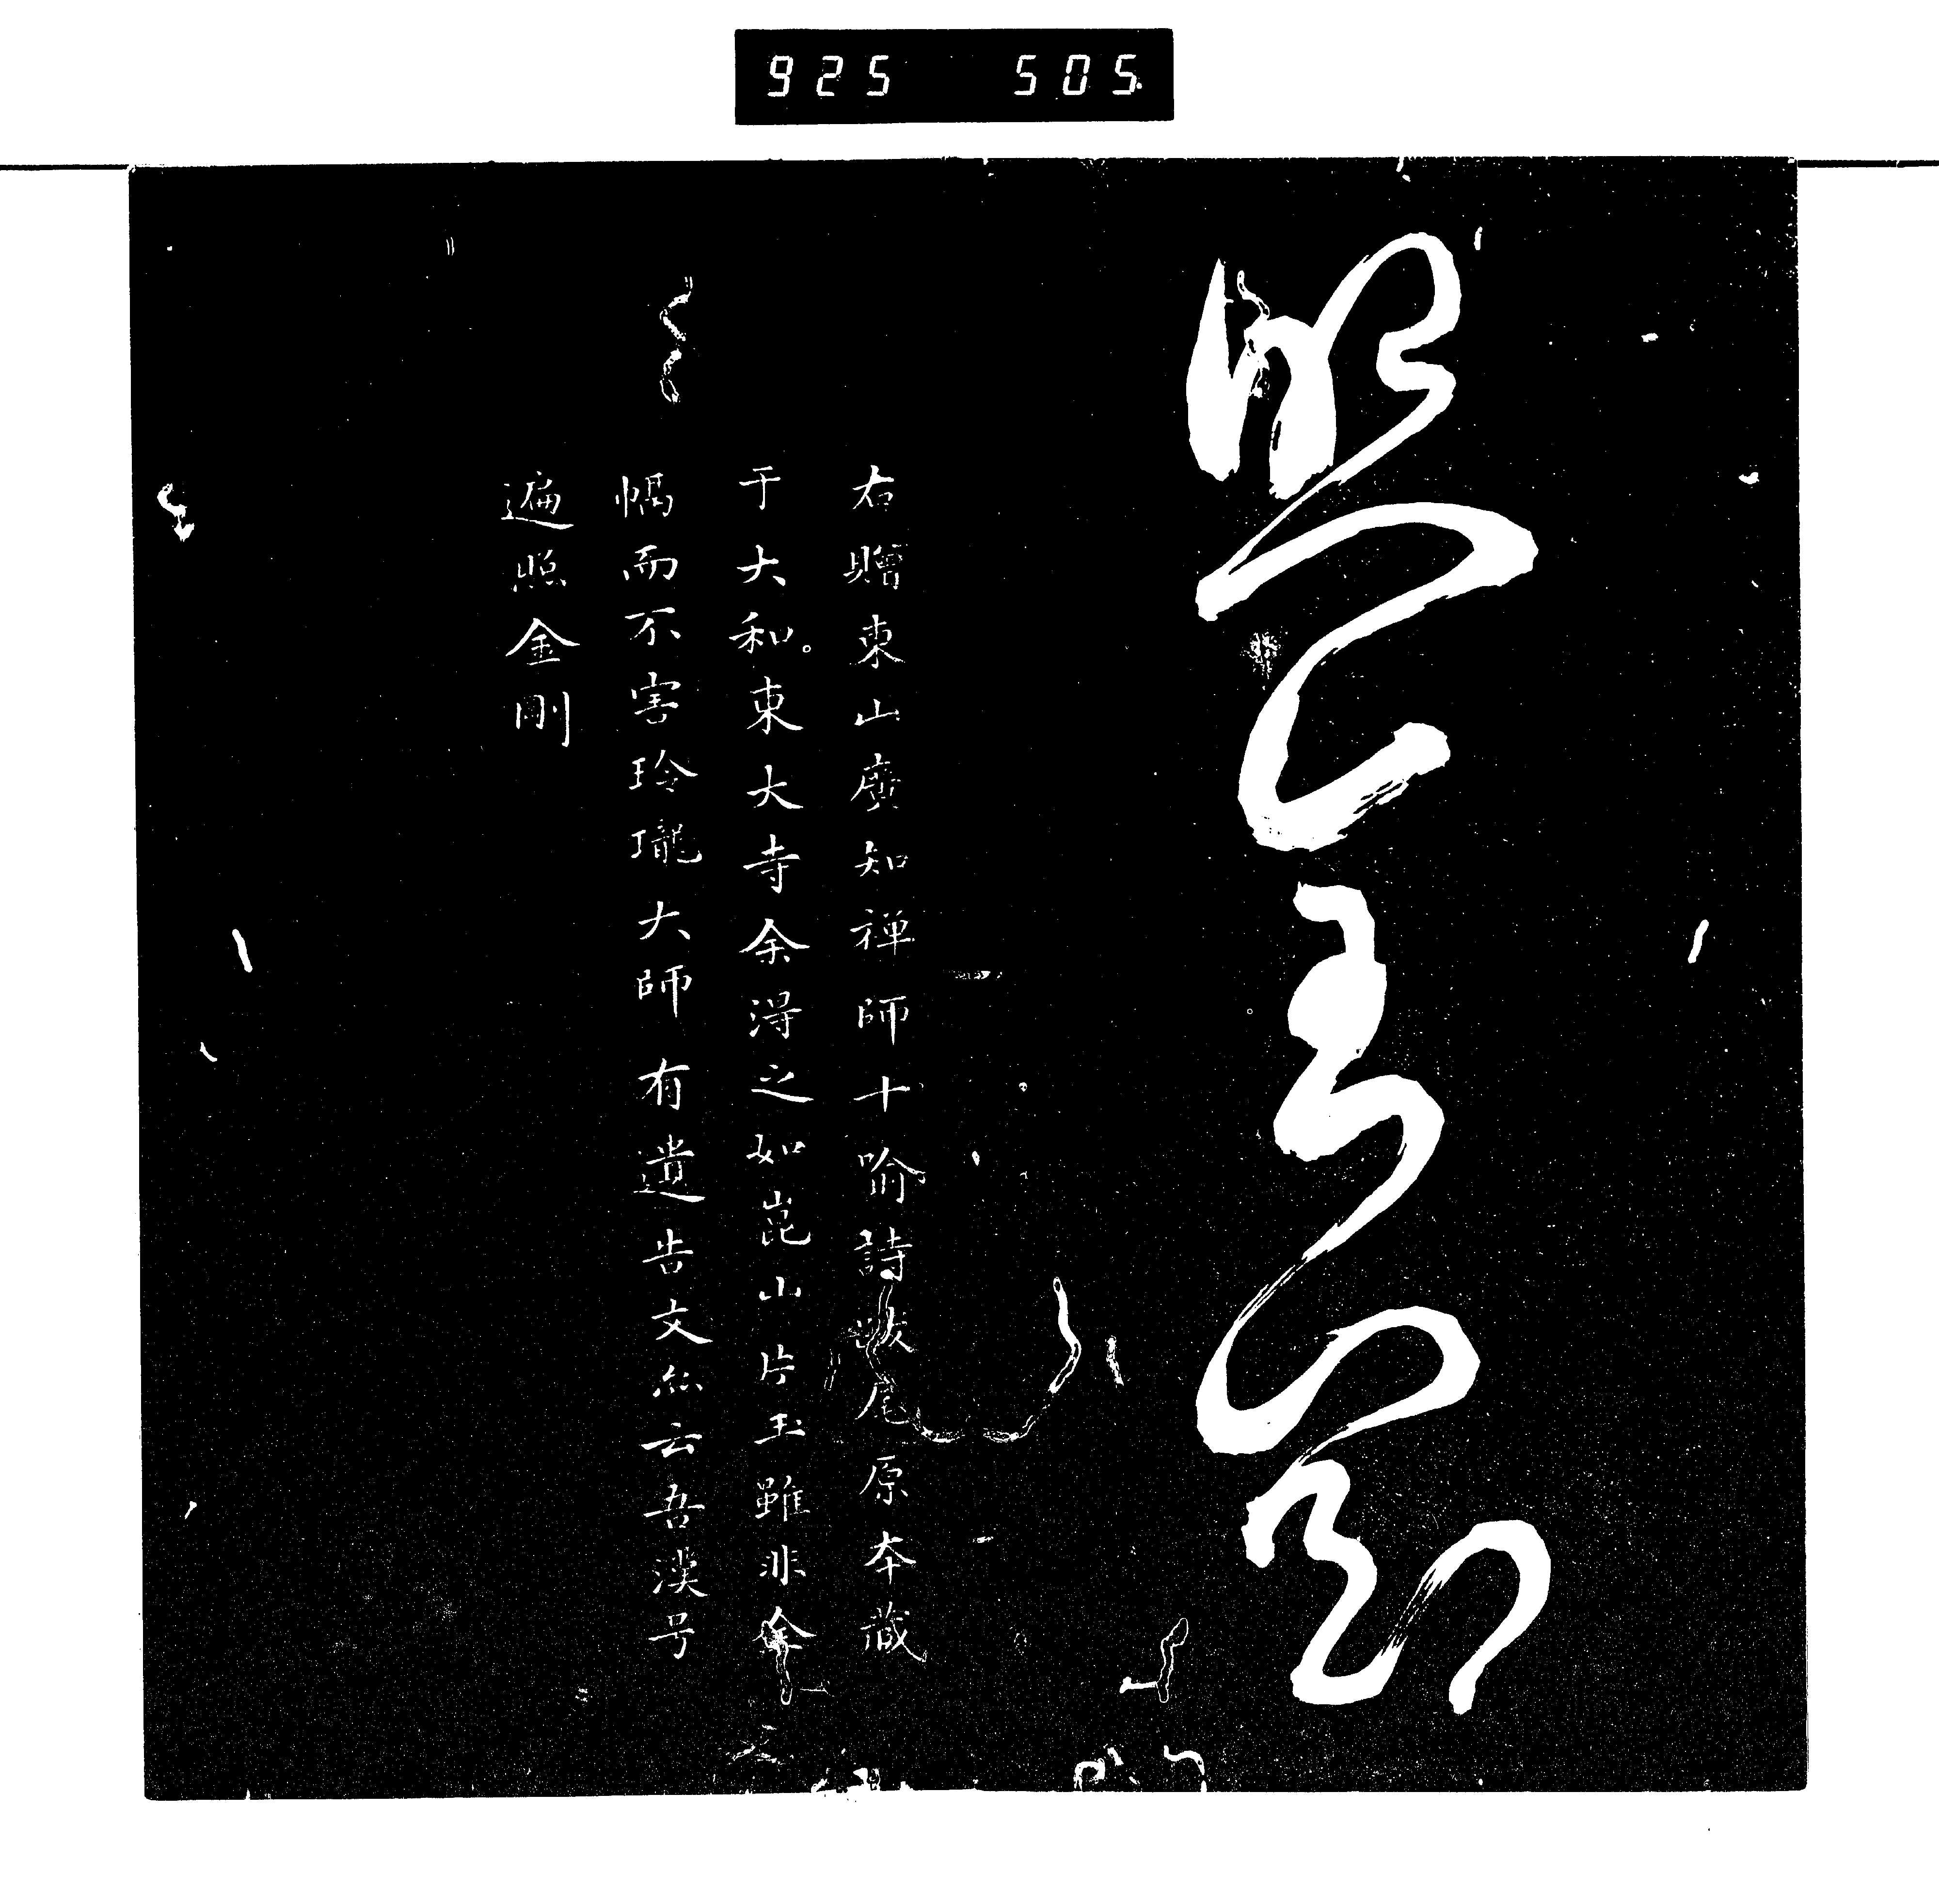 925 505
照金剛
右贈東山廣知禅師十喻詩跋尾原本藏
于大和。東大寺余淂之如崑山片玉雖非全
幅而不害玲瓏大師有遺告文然云吾漢号
遍照金剛